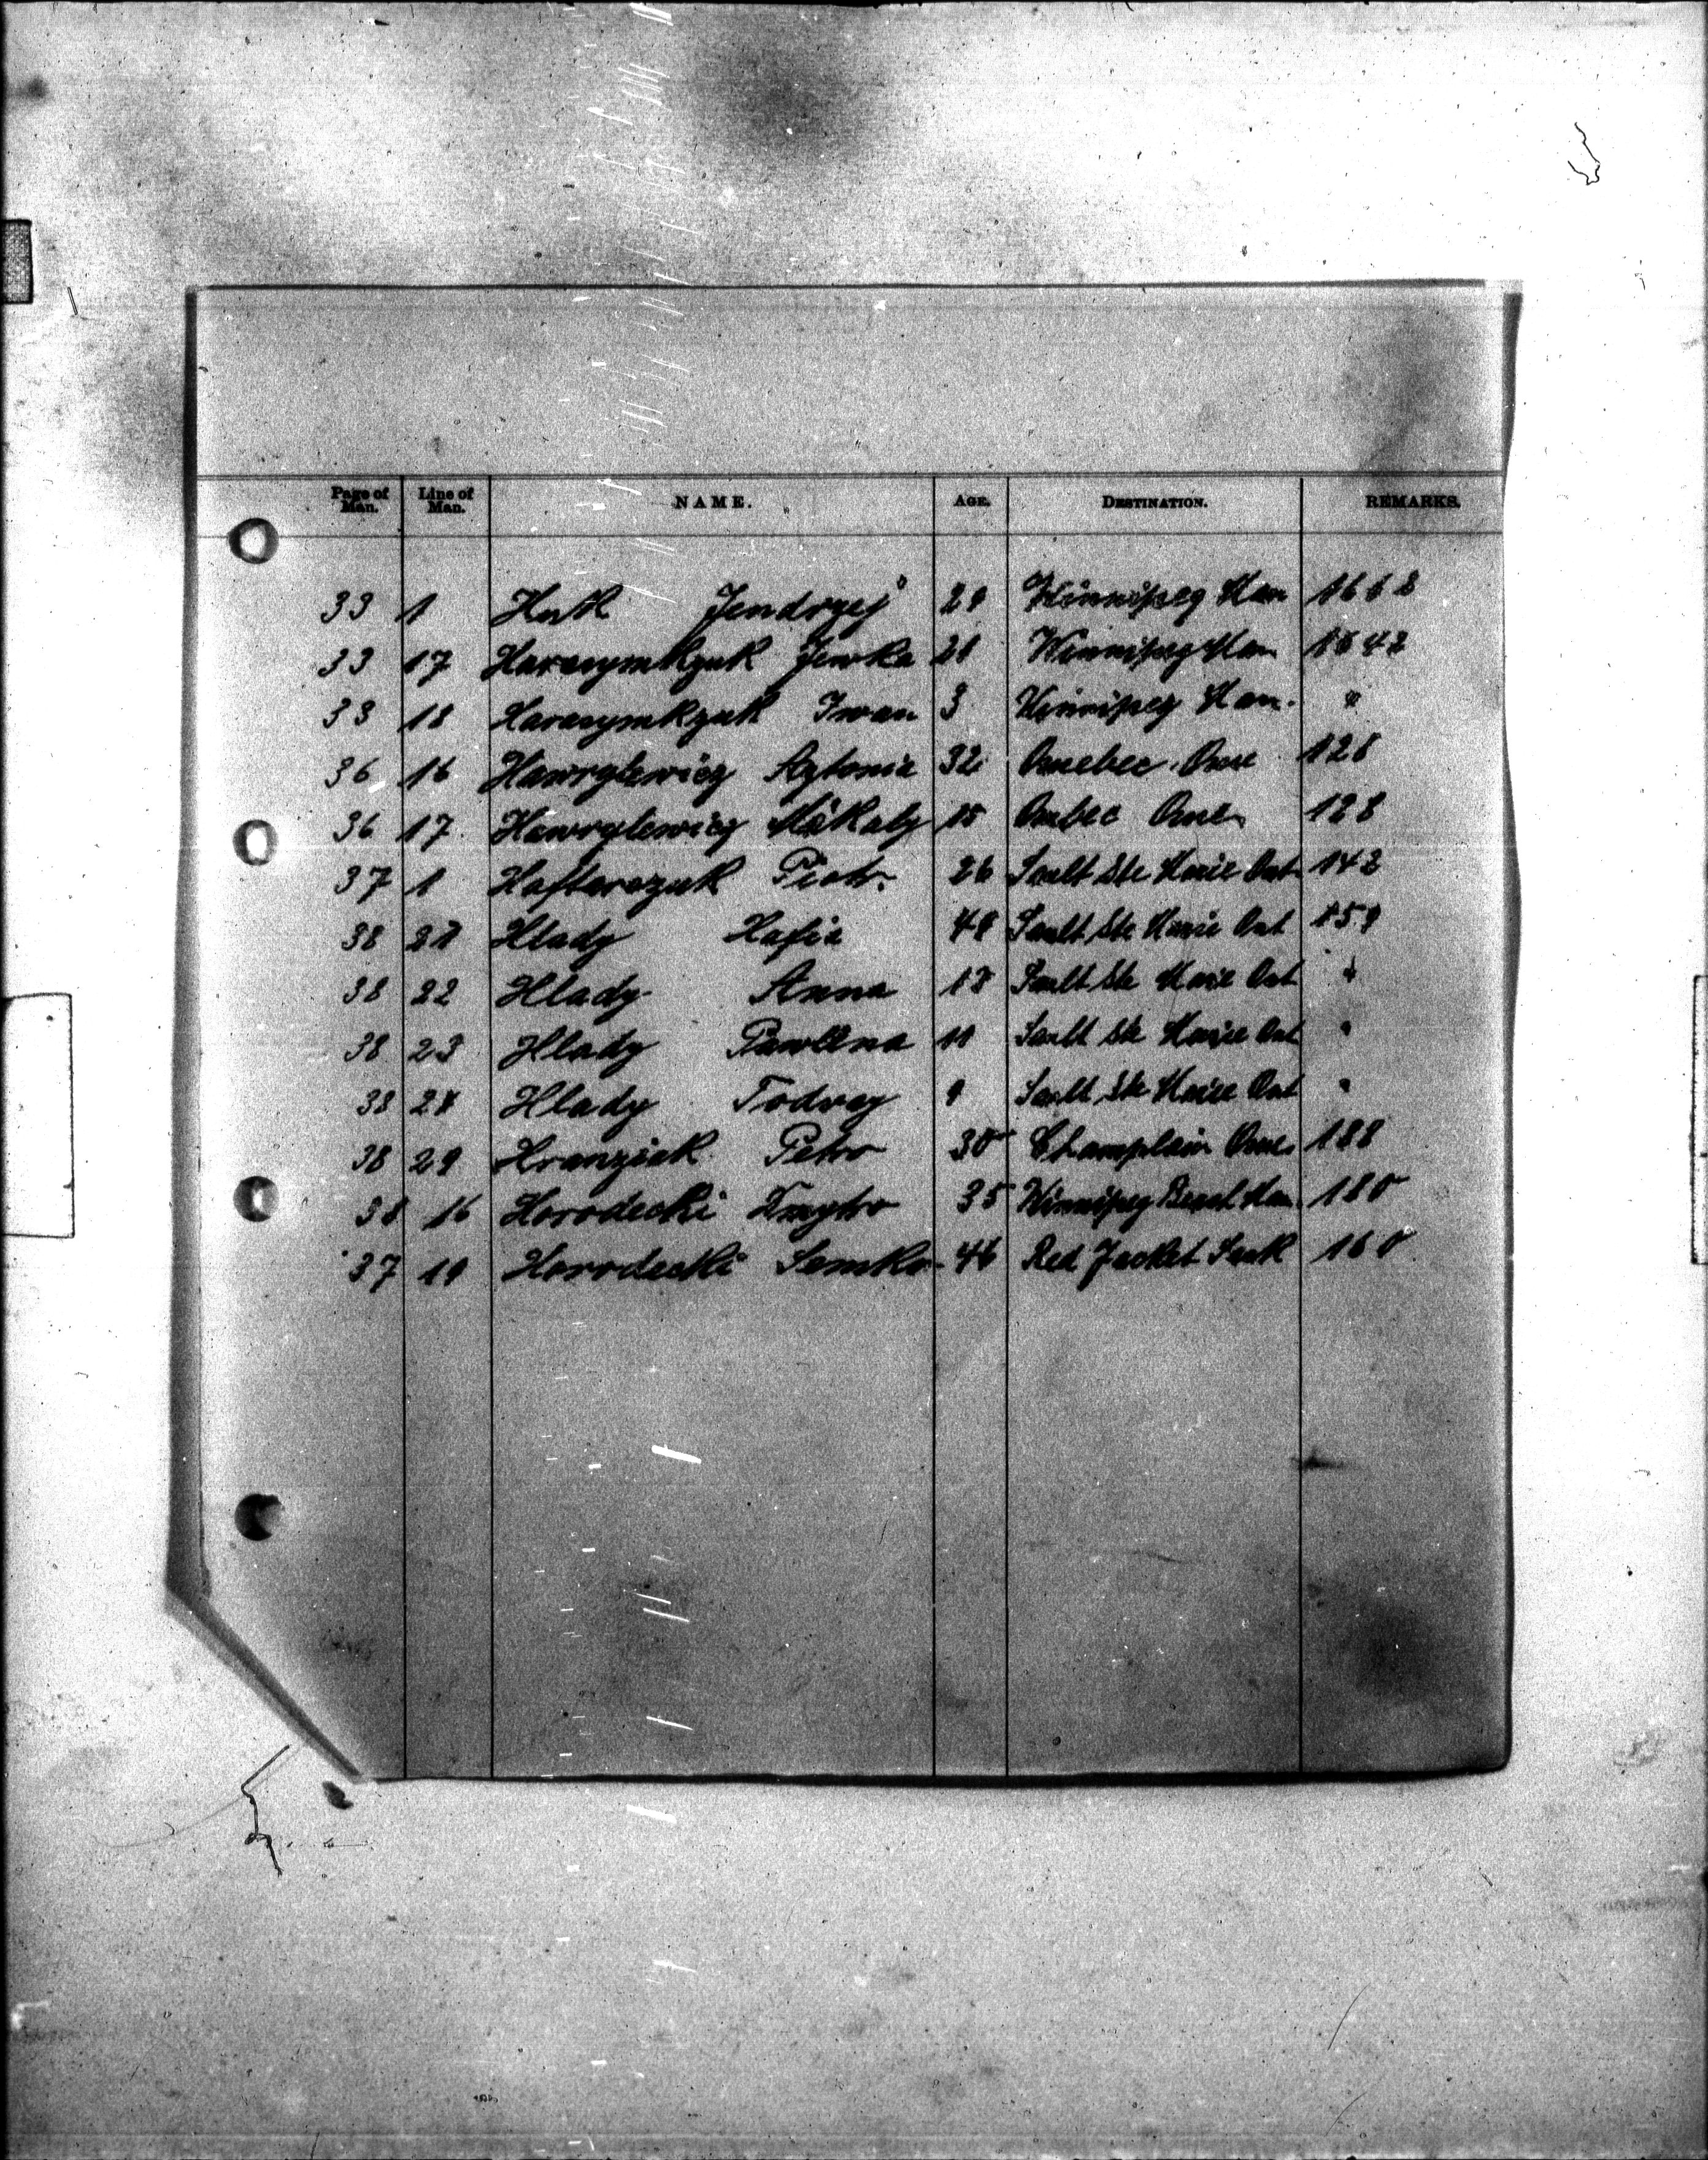 Page of Man. Line of Man. NAME. AGE. DESTINATION. REMARKS.
33 1 Huk Jendrzej 29 Winnipeg Man 1668
33 17 Harasymkzuk Jewka 21 Winnipeg Man 1642
33 18 Harasymkzuk Iwan 3 Winnipeg Man. "
36 16 Hawrylewicz Agtonia 32 Quebec Que 128
36 17 Hawrylewicz Mikaly 15 Qubec Que 128
37 1 Haftarczuk Piotr. 26 Sault Ste Marie Ont 142
38 21 Hlady Hafia 49 Sault Ste Marie Ont 159
38 22 Hlady Anna 18 Sault Ste Marie Ont "
38 23 Hlady Pawlina 11 Sault Ste Marie Ont "
38 24 Hlady Todvey 9 Sault Ste Marie Ont "
38 29 Hranziak Petro 30 Champlain Que 188
38 16 Horodecki Dmytro 35 Winnipeg Beach Man. 180
37 19 Horodecki Semko 46 Red Jacket Sask 160